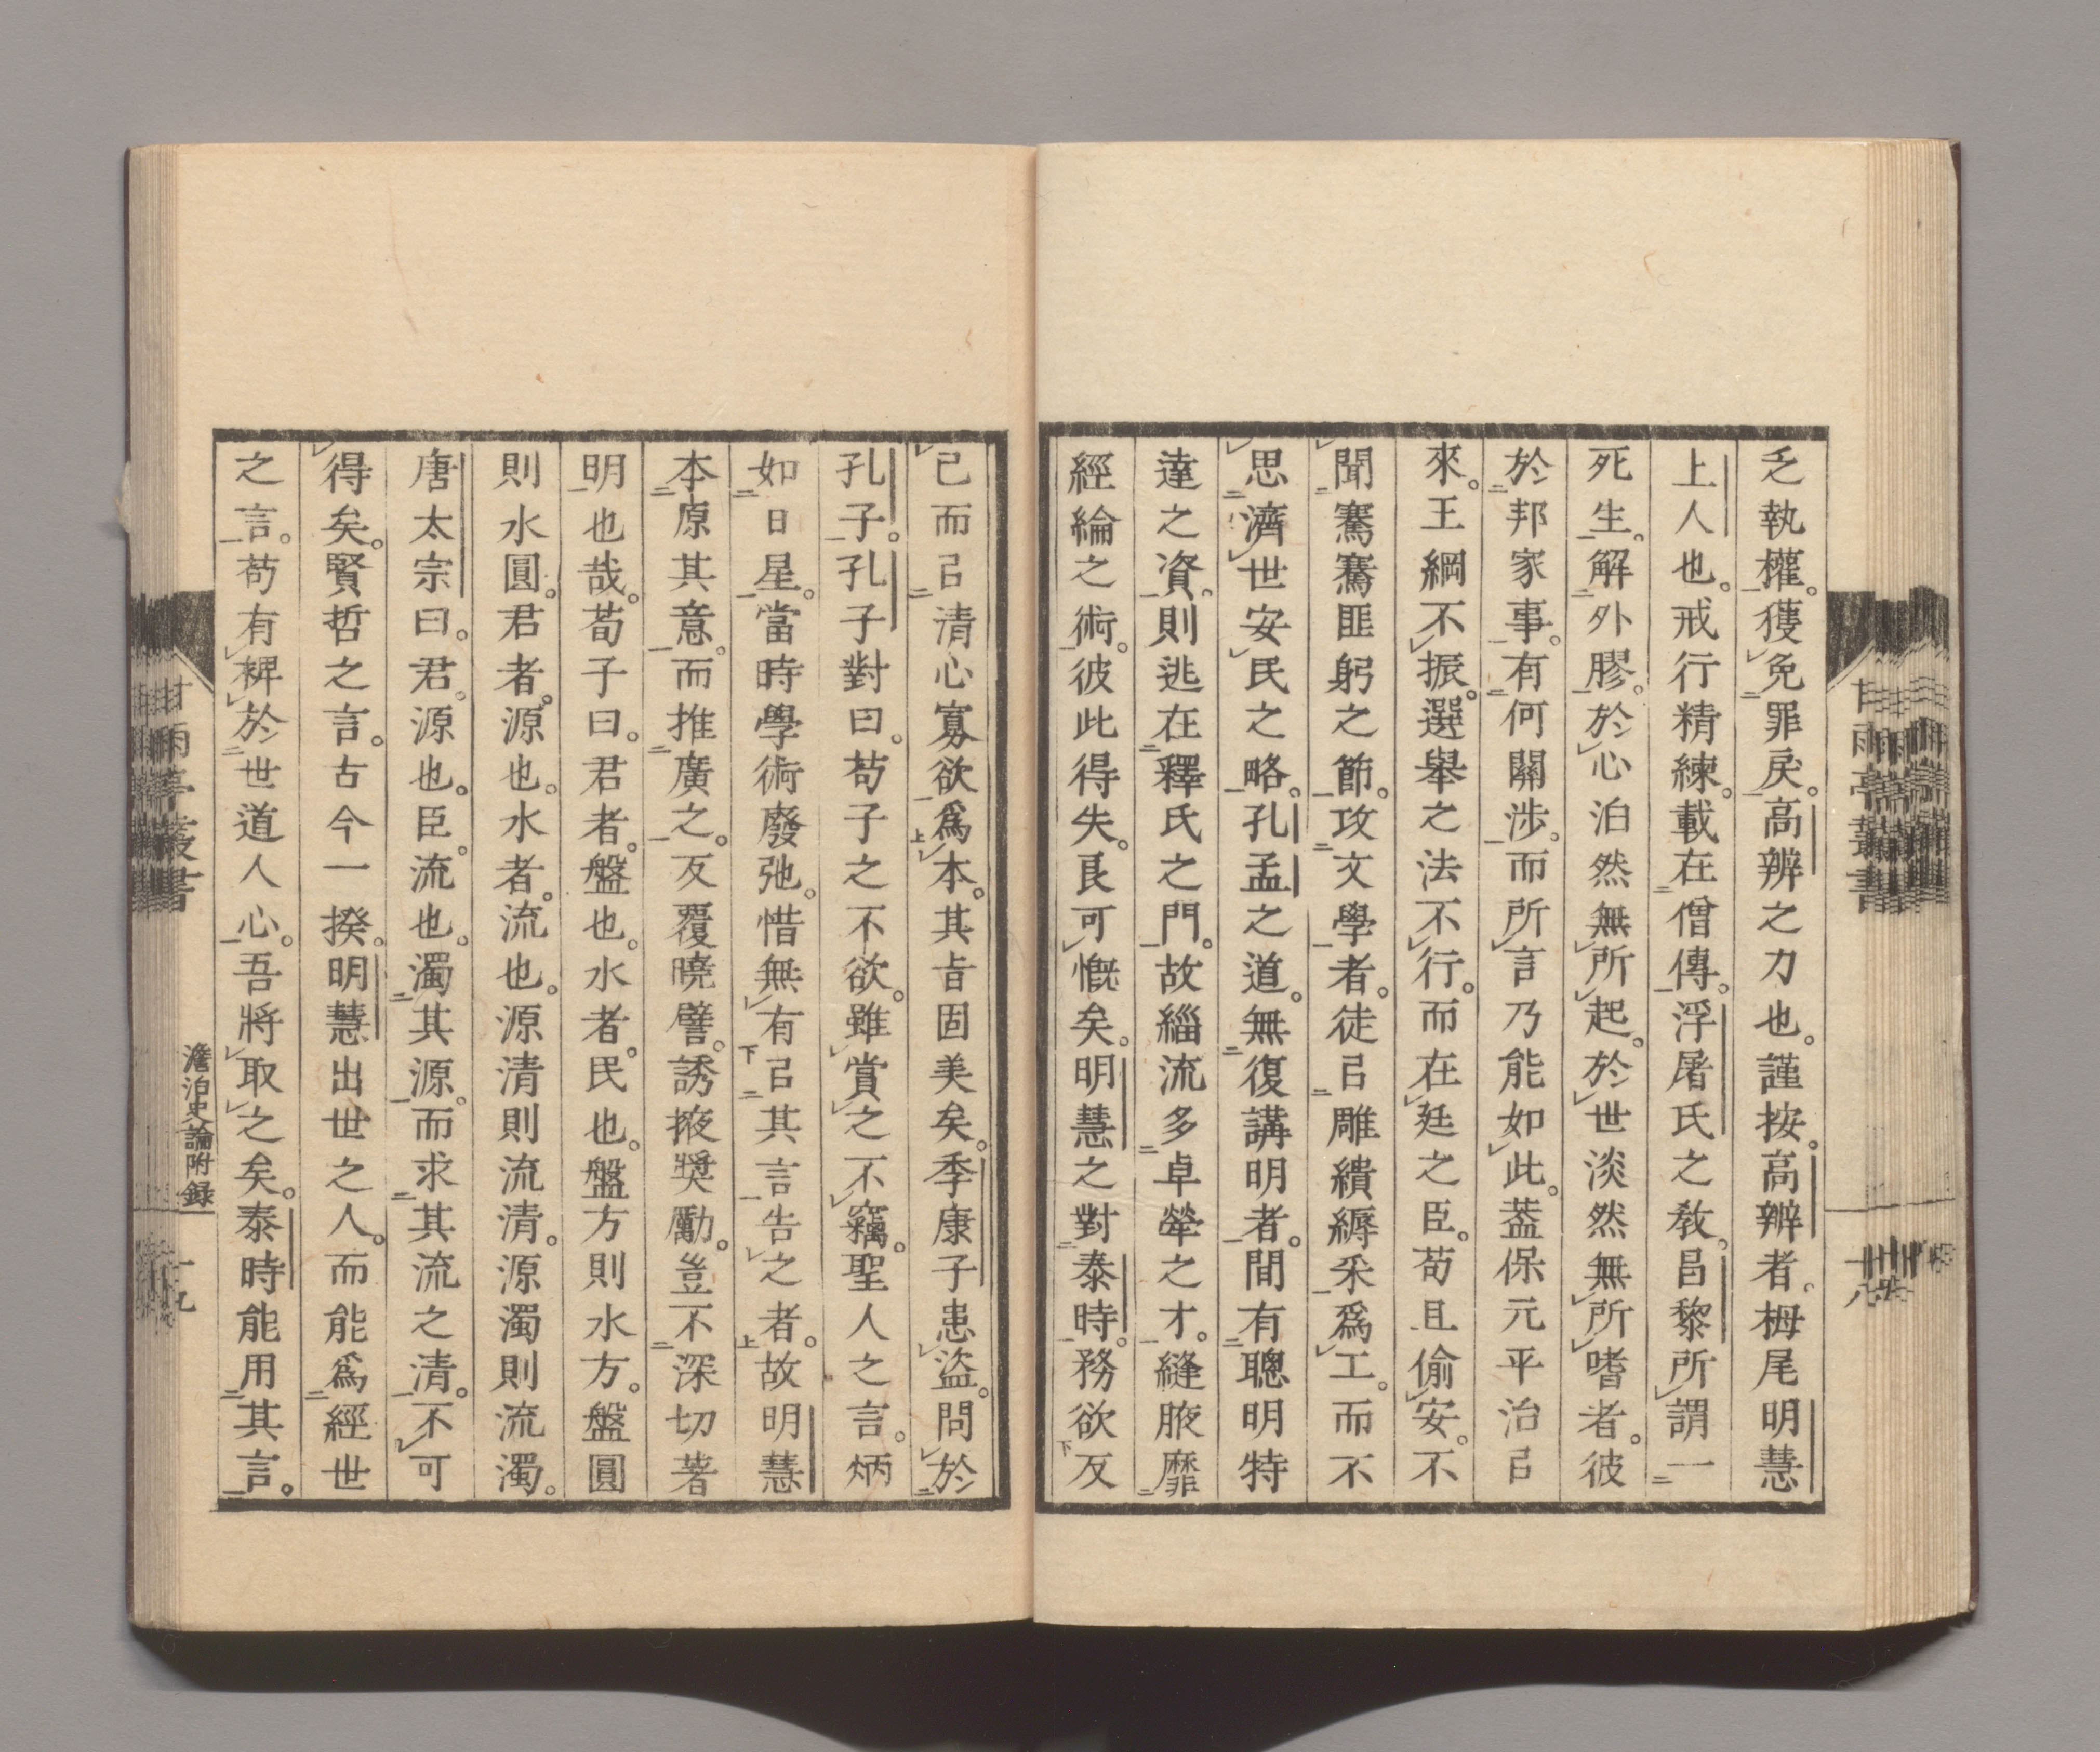 乏執權。獲免罪戾。高辨之力也。謹按。高辨者。栂尾明慧
上人也。戒行精練。載在僧傳。浮屠氏之教。呂黎所謂一
死生。解外膠。於心泊然無所起。於世淡然無所嗜者。彼
於邦家事。有何關涉。而所言乃能如此。葢保元平治㠯
來。王綱不振。選舉之法不行。而在廷之臣。苟且偷安。不
聞騫騫匪躬之節。攻文學者。徒㠯雕繢縟采爲工。而不
思濟世安民之略。孔孟之道。無復講明者。間有聰明特
達之資。則逃在釋氏之門。故緇流多卓犖之才。縫腋靡
經綸之術。彼此得失。良可慨矣。明慧之對泰時。務欲反
已而㠯清心寡欲爲本。其旨固美矣。季康子患盜。問於
孔子。孔子對曰。苟子之不欲。雖賞之不竊。聖人之言。炳
如日星。當時學術廢弛。惜無有㠯其言告之者。故明慧
本原其意。而推廣之。反覆曉譬。誘掖奬勵。豈不深切著
明也哉。荀子曰。君者。盤也。水者。民也。盤方則水方。盤圓
則水圓。君者。源也。水者。流也。源清則流清。源濁則流濁。
唐太宗曰。君。源也。臣。流也。濁其源。而求其流之清。不可
得矣。賢哲之言。古今一揆。明慧出世之人。而能爲經世
之言。苟有裨於世道人心。吾將取之矣。泰時能用其言。
甘雨亭叢書
澹泊史論附錄
十九
甘雨亭叢書
十八